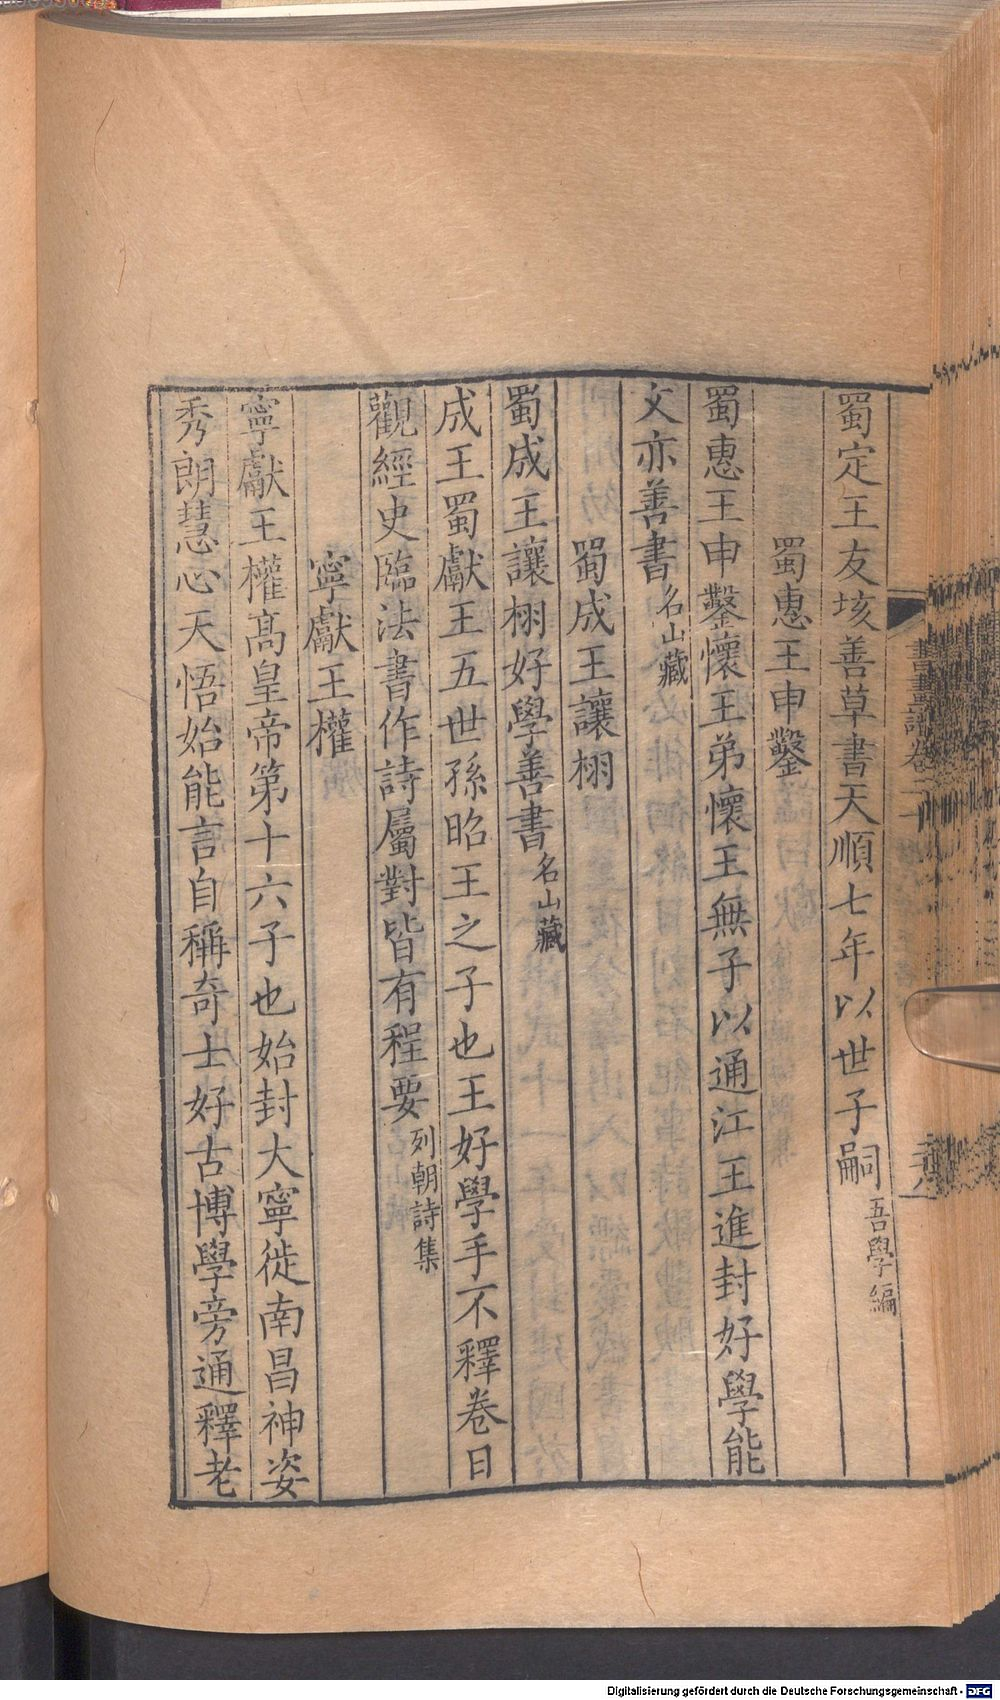 蜀定王友垓善草書天順七年以世子嗣吾學編
蜀惠王申鑿
蜀惠王申鑿懷王弟懷王無子以通江王進封好學能
文亦善書名山藏
蜀成王讓栩
蜀成王讓栩好學善書名山藏
成王蜀獻王五世孫昭王之子也王好學手不釋卷日
觀經史臨法書作詩屬對皆有程要列朝詩集
寧獻王權
寧獻王權高皇帝第十六子也始封大寧徙南昌神姿
秀朗慧心天悟始能言自稱奇士好古博學旁通釋老
Digitalisierung gefördert durch die Deutsche Forschungsgemeinschaft - DFG